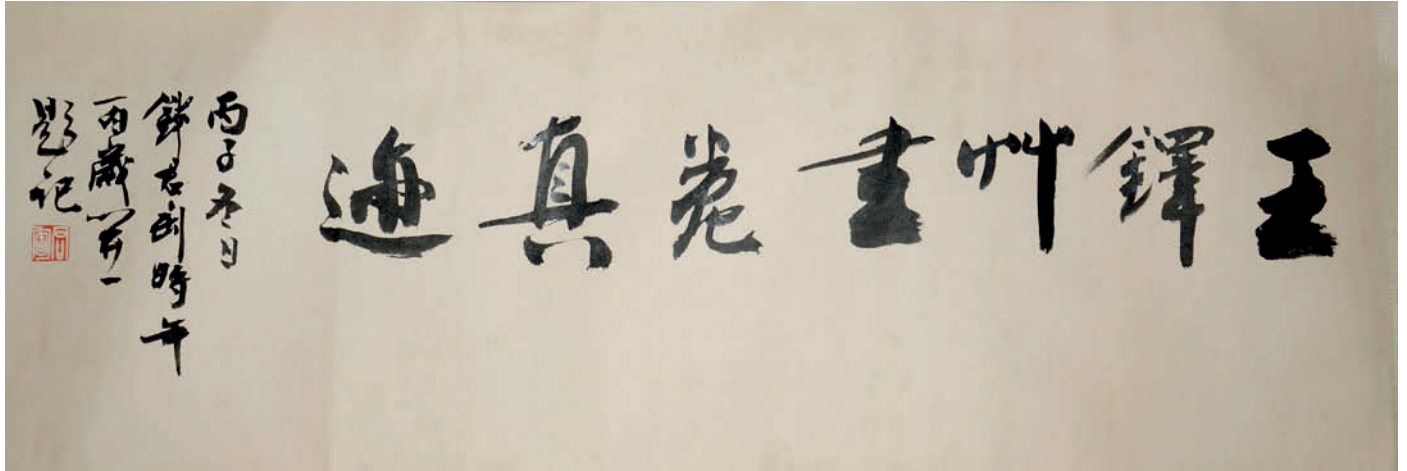 王鐸艸書卷真迹
丙子冬日
錢君匋時年
百歲開一
題記